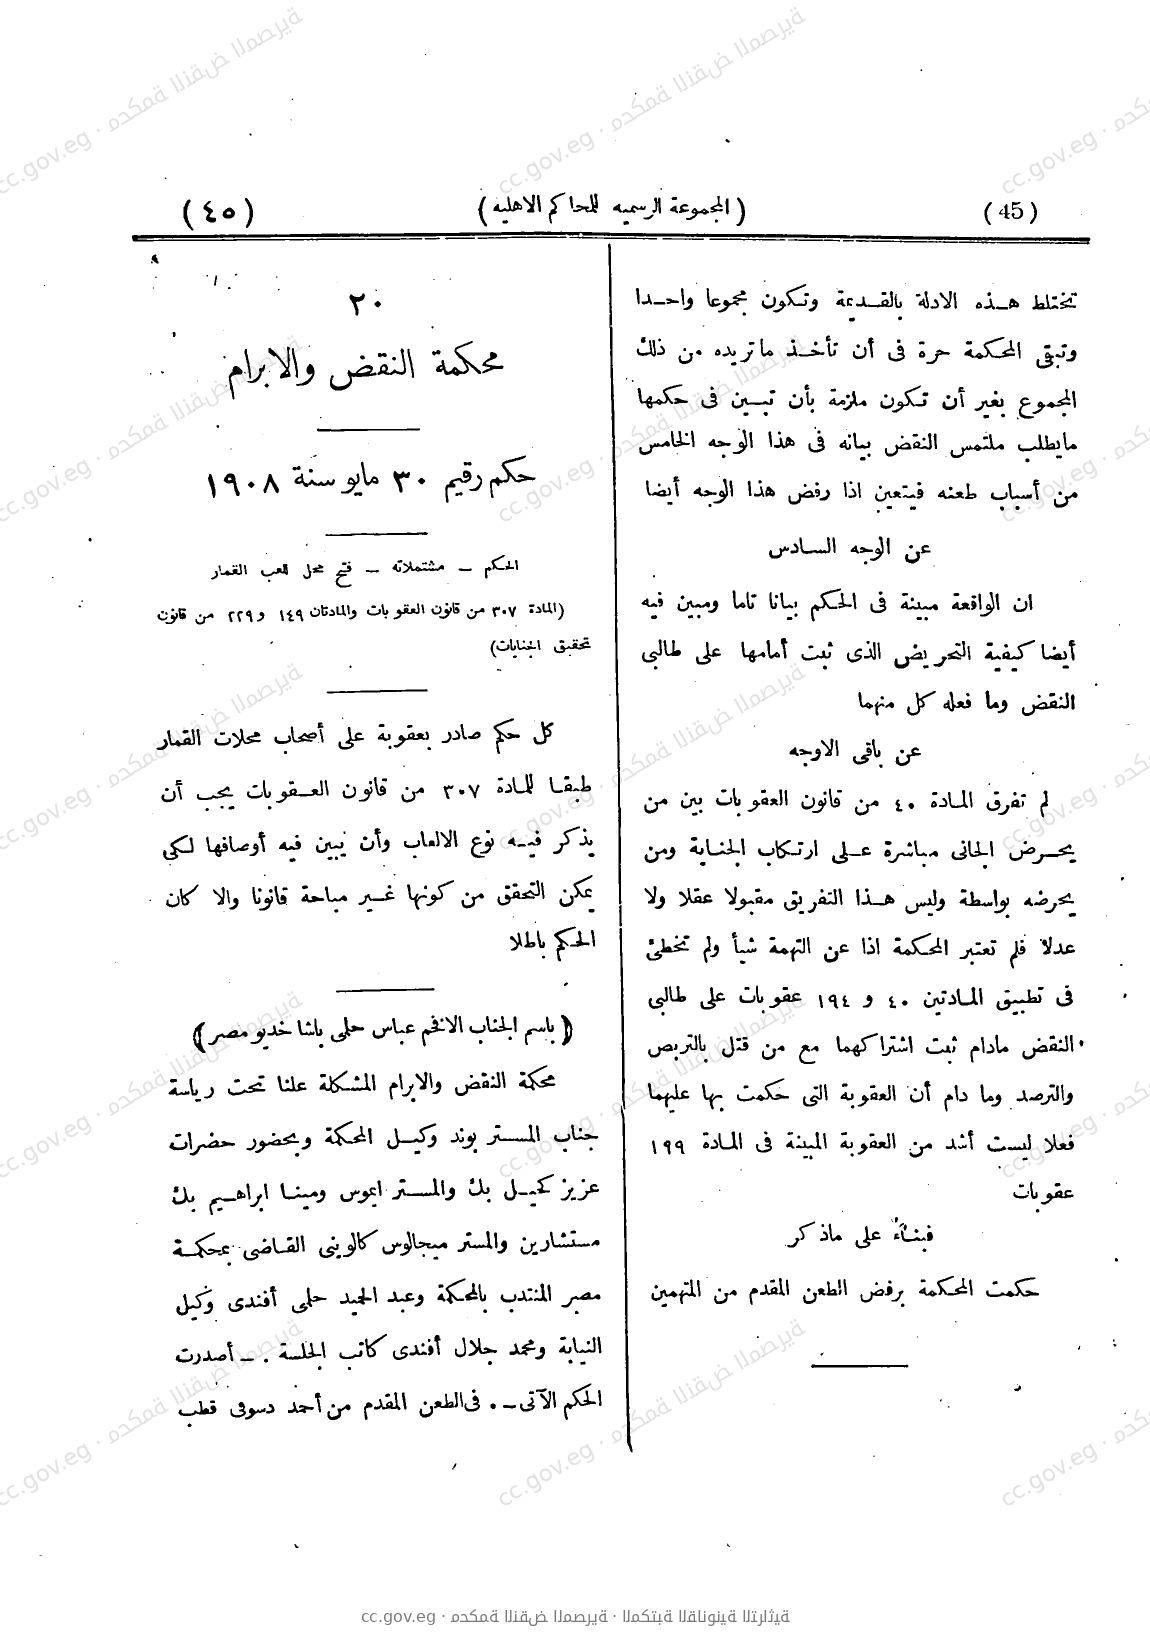 (45)
(المجموعة الرسميه للمحاكم الاهليه)
(٤٥)
تختلط هذه الادلة بالقديمة وتكون مجموعا واحدا
وتبقى المحكمة حرة فى أن تأخذ ماتريده من ذلك
المجموع بغير أن تكون ملزمة بأن تبين فى حكمها
مايطلب ملتمس النقض بيانه فى هذا الوجه الخامس
من أسباب طعنه فيتعين اذا رفض هذا الوجه أيضا
عن الوجه السادس
ان الواقعة مبينة فى الحكم بيانا تاما ومبين فيه
أيضا كيفية التحريض الذى ثبت أمامها على طالبى
النقض وما فعله كل منهما
عن باقى الاوجه
لم تفرق المادة ٤٠ من قانون العقوبات بين من
يحرض الجانى مباشرة على ارتكاب الجناية ومن
يحرضه بواسطة وليس هذا التفريق مقبولا عقلا ولا
عدلا فلم تعتبر المحكمة اذا عن التهمة شيأ ولم تخطئ
فى تطبيق المادتين ٤٠ و ١٩٤ عقوبات على طالبى
النقض مادام ثبت اشتراكهما مع من قتل بالتربص
والترصد وما دام أن العقوبة التى حكمت بها عليهما
فعلا ليست أشد من العقوبة المبينة فى المادة ١٩٩
عقوبات
فبناء على ماذكر
حكمت المحكمة برفض الطعن المقدم من المتهمين
٢٠
محكمة النقض والابرام
حكم رقيم ٣٠ مايو سنة ١٩٠٨
الحكم – مشتملاته – فتح محل للعب القمار
(المادة ٣٠٧ من قانون العقوبات والمادتان ١٤٩ و٢٢٩ من قانون
تحقيق الجنايات)
كل حكم صادر بعقوبة على أصحاب محلات القمار
طبقا للمادة ٣٠٧ من قانون العقوبات يجب أن
يذكر فيه نوع الالعاب وأن يبين فيه أوصافها لكى
يمكن التحقق من كونها غير مباحة قانونا والا كان
الحكم باطلا
(باسم الجناب الافخم عباس حلمى باشا خديو مصر)
محكمة النقض والابرام المشكلة علنا تحت رياسة
جناب المستر بوند وكيل المحكمة وبحضور حضرات
عزيز كحيل بك والمستر ايموس ومينا ابراهيم بك
مستشارين والمستر ميجالوس كالوينى القاضى بمحكمة
مصر المنتدب بالمحكمة وعبد الحميد حلمى أفندى وكيل
النيابة ومحمد جلال أفندى كاتب الجلسة . – أصدرت
الحكم الآتى – . فى الطعن المقدم من أحمد دسوقى قطب
cc.gov.eg · محكمة النقض المصرية · المكتبة القانونية التراثية